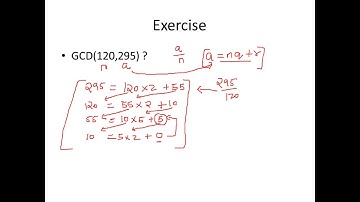 Exercise
• GCD(120,295) ?
a/n
a = nq + r
n a
295 = 120 × 2 + 55
295/120
120 = 55 × 2 + 10
55 = 10 × 5 + 5
10 = 5 × 2 + 0